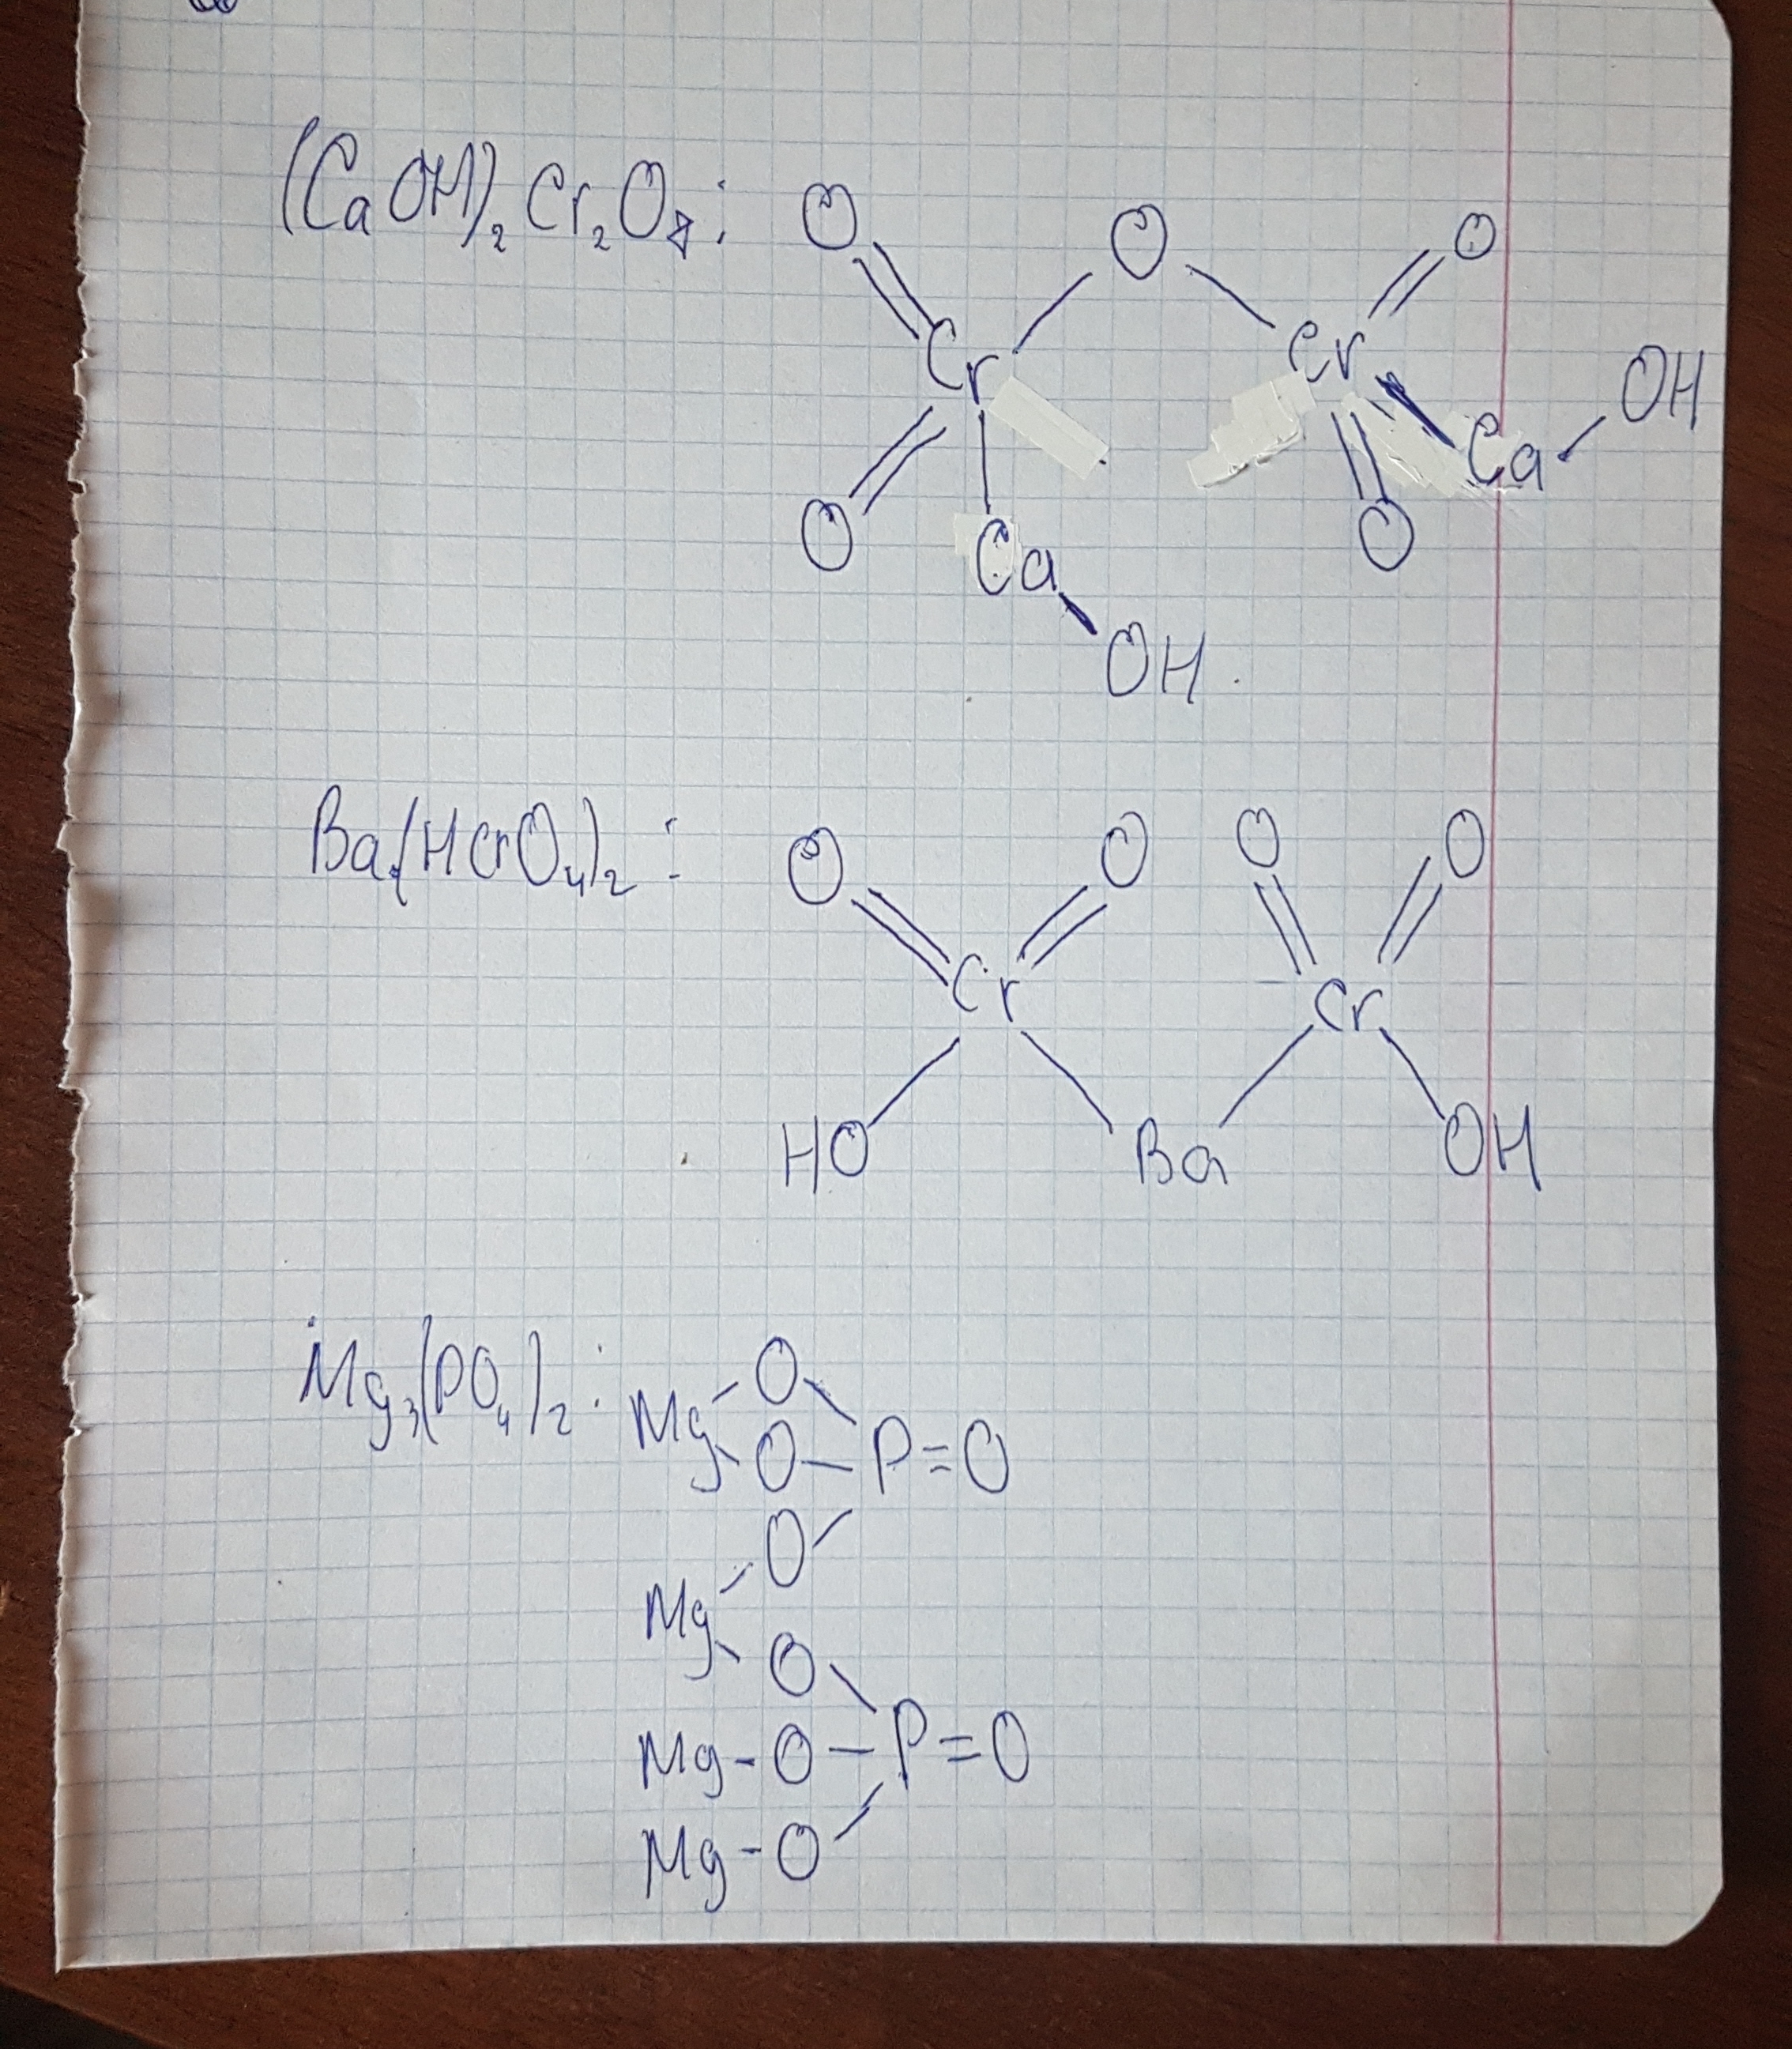 (CaOH)₂Cr₂O₇: O O O
Cr Cr
OH
Ca
O Ca O
OH.
Ba(HCrO₄)₂: O O O O
Cr Cr
HO Ba OH
Mg₃(PO₄)₂: O
Mg O P=O
O
Mg
O
Mg-O-P=O
Mg-O